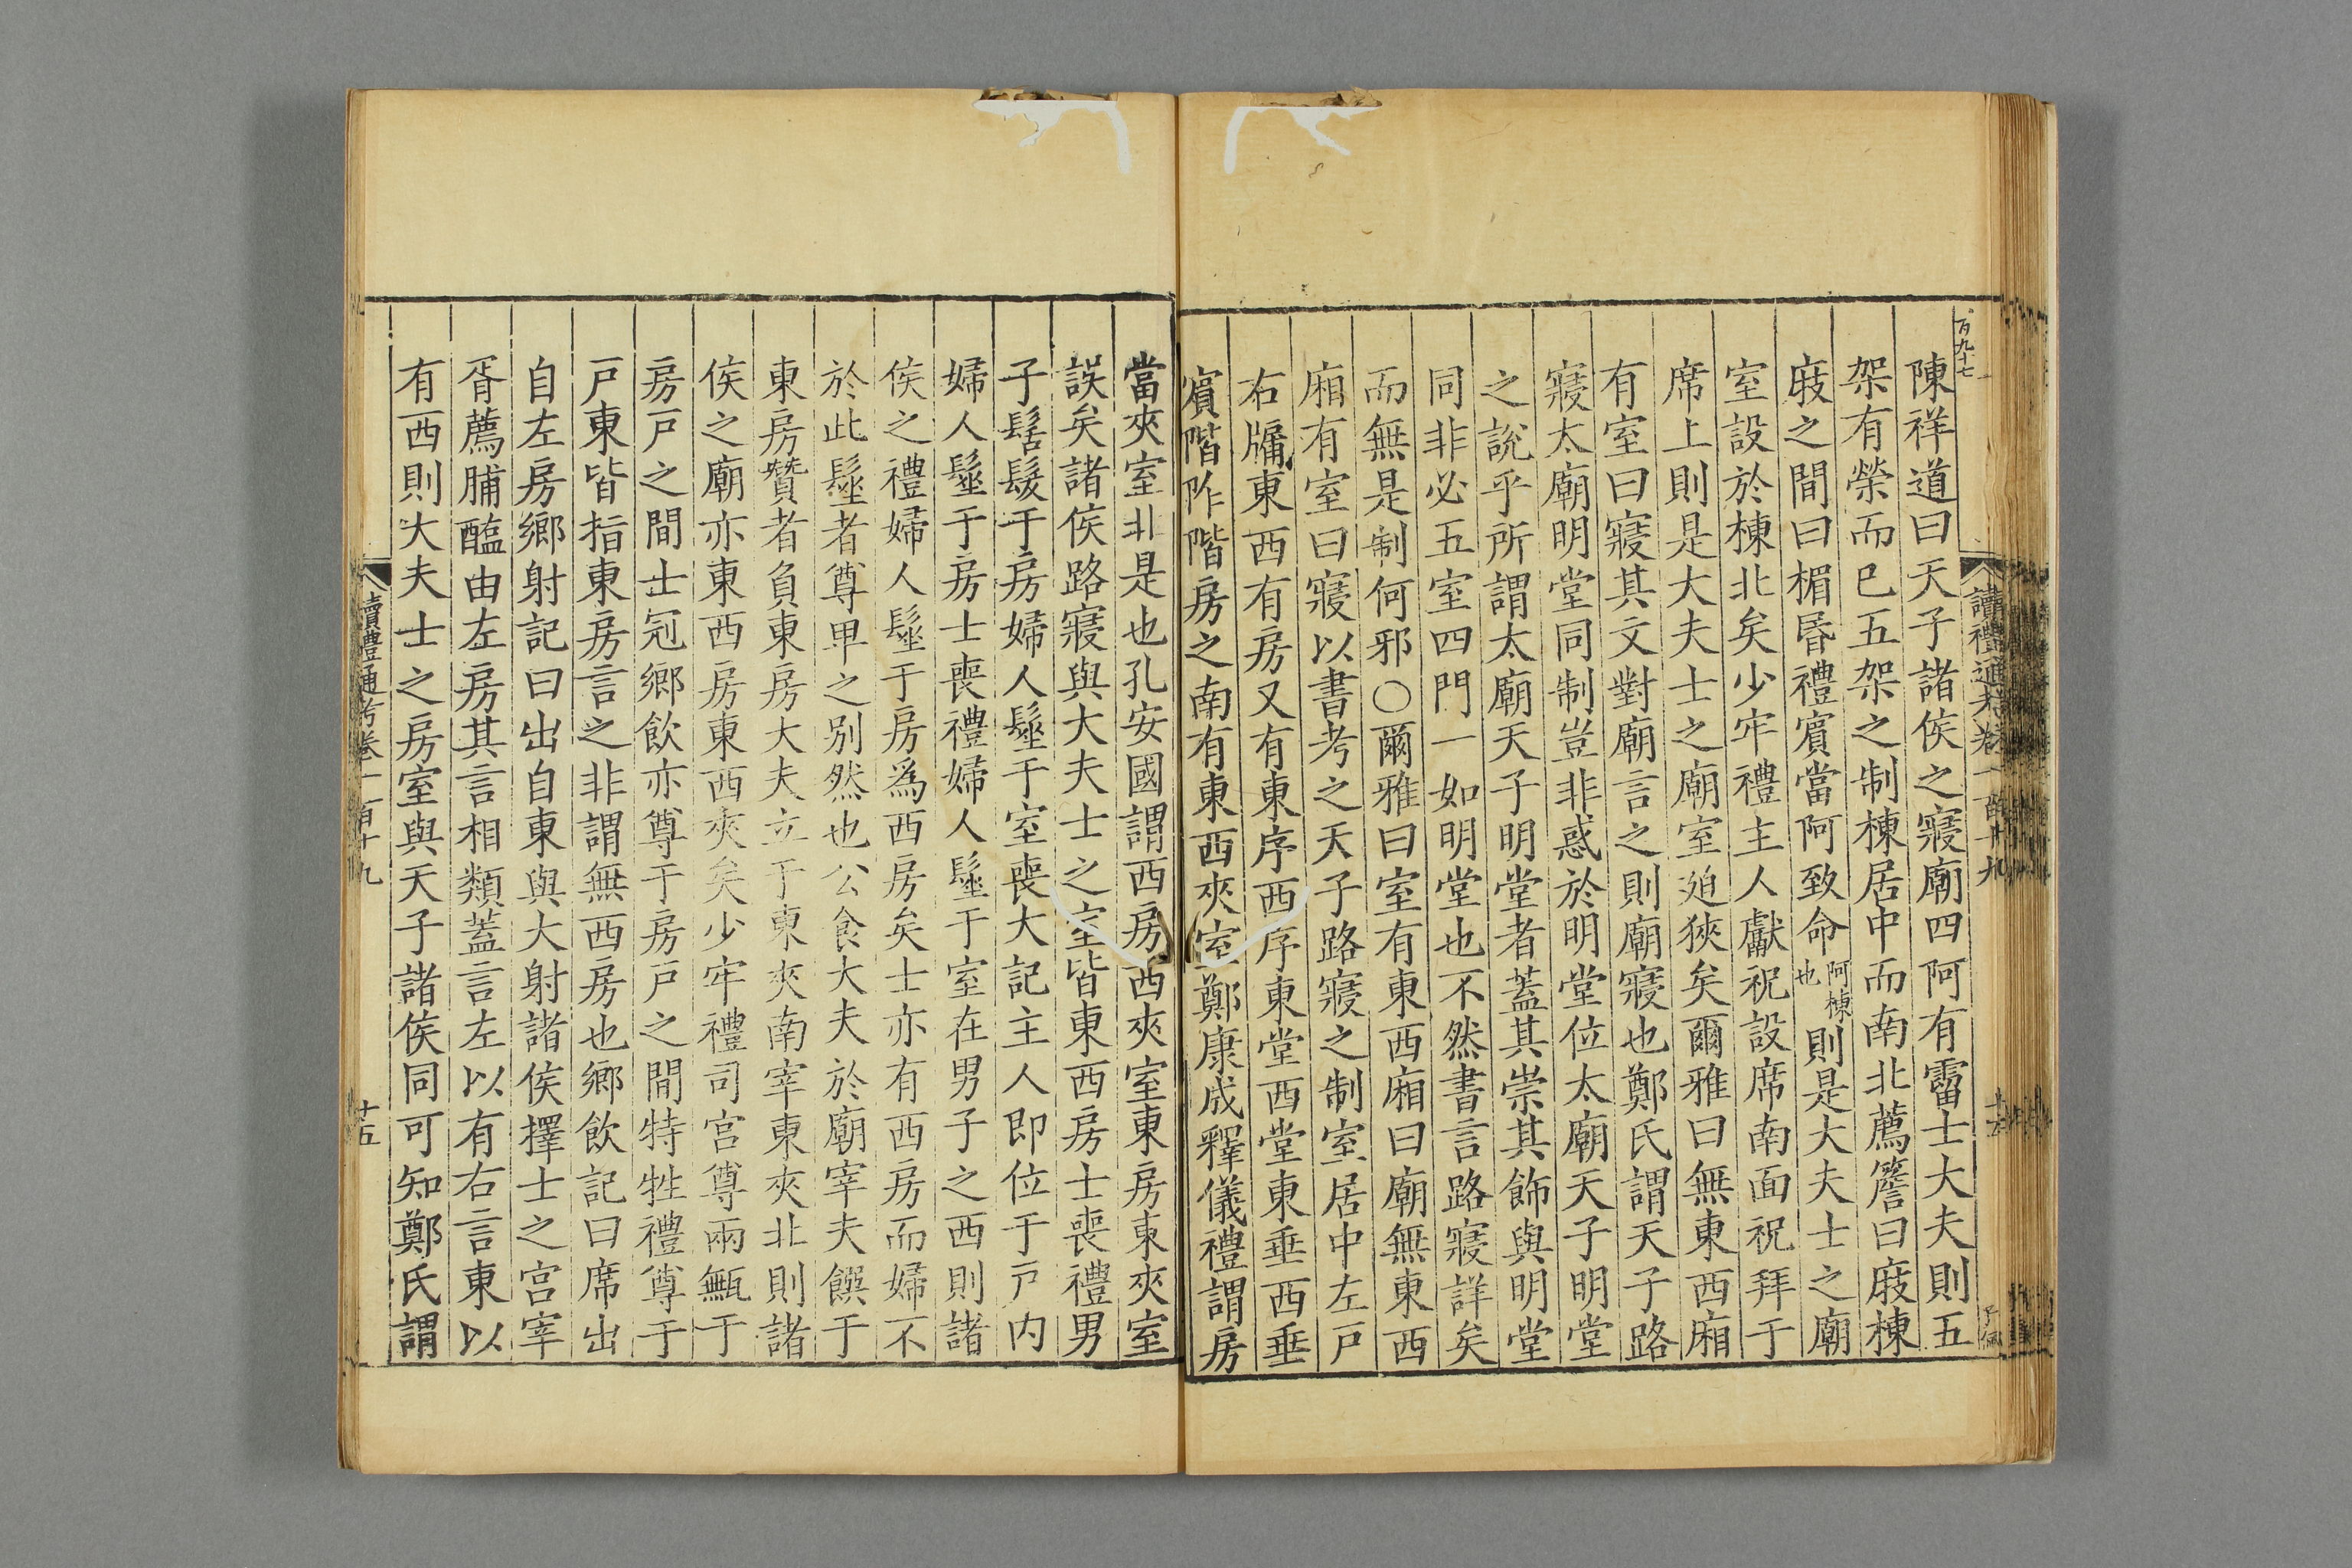 百九十七
讀禮通考卷一百十九
陳祥道曰天子諸侯之寢廟四阿有霤士大夫則五
架有榮而已五架之制棟居中而南北薦簷曰庪棟
庪之間曰楣昏禮賓當阿致命阿棟也則是大夫士之廟
室設於棟北矣少牢禮主人獻祝設席南面祝拜于
席上則是大夫士之廟室迫狹矣爾雅曰無東西廂
有室曰寢其文對廟言之則廟寢也鄭氏謂天子路
寢太廟明堂同制豈非惑於明堂位太廟天子明堂
之說乎所謂太廟天子明堂者蓋其崇其飾與明堂
同非必五室四門一如明堂也不然書言路寢詳矣
而無是制何邪○爾雅曰室有東西廂曰廟無東西
廂有室曰寢以書考之天子路寢之制室居中左戶
右牖東西有房又有東序西序東堂西堂東垂西垂
賓階阼階房之南有東西夾室鄭康成釋儀禮謂房
當夾室北是也孔安國謂西房西夾室東房東夾室
誤矣諸侯路寢與大夫士之室皆東西房士喪禮男
子髻髮于房婦人髽于室喪大記主人即位于戶內
婦人髽于房士喪禮婦人髽于室在男子之西則諸
侯之禮婦人髽于房為西房矣士亦有西房而婦不
於此髽者尊卑之別然也公食大夫於廟宰夫饌于
東房贊者負東房大夫立于東夾南宰東夾北則諸
侯之廟亦東西房東西夾矣少牢禮司宮尊兩甒于
房戶之間士冠鄉飲亦尊于房戶之間特牲禮尊于
戶東皆指東房言之非謂無西房也鄉飲記曰席出
自左房鄉射記曰出自東與大射諸侯擇士之宮宰
胥薦脯醢由左房其言相類蓋言左以有右言東以
有西則大夫士之房室與天子諸侯同可知鄭氏謂
讀禮通考卷一百十九
十五